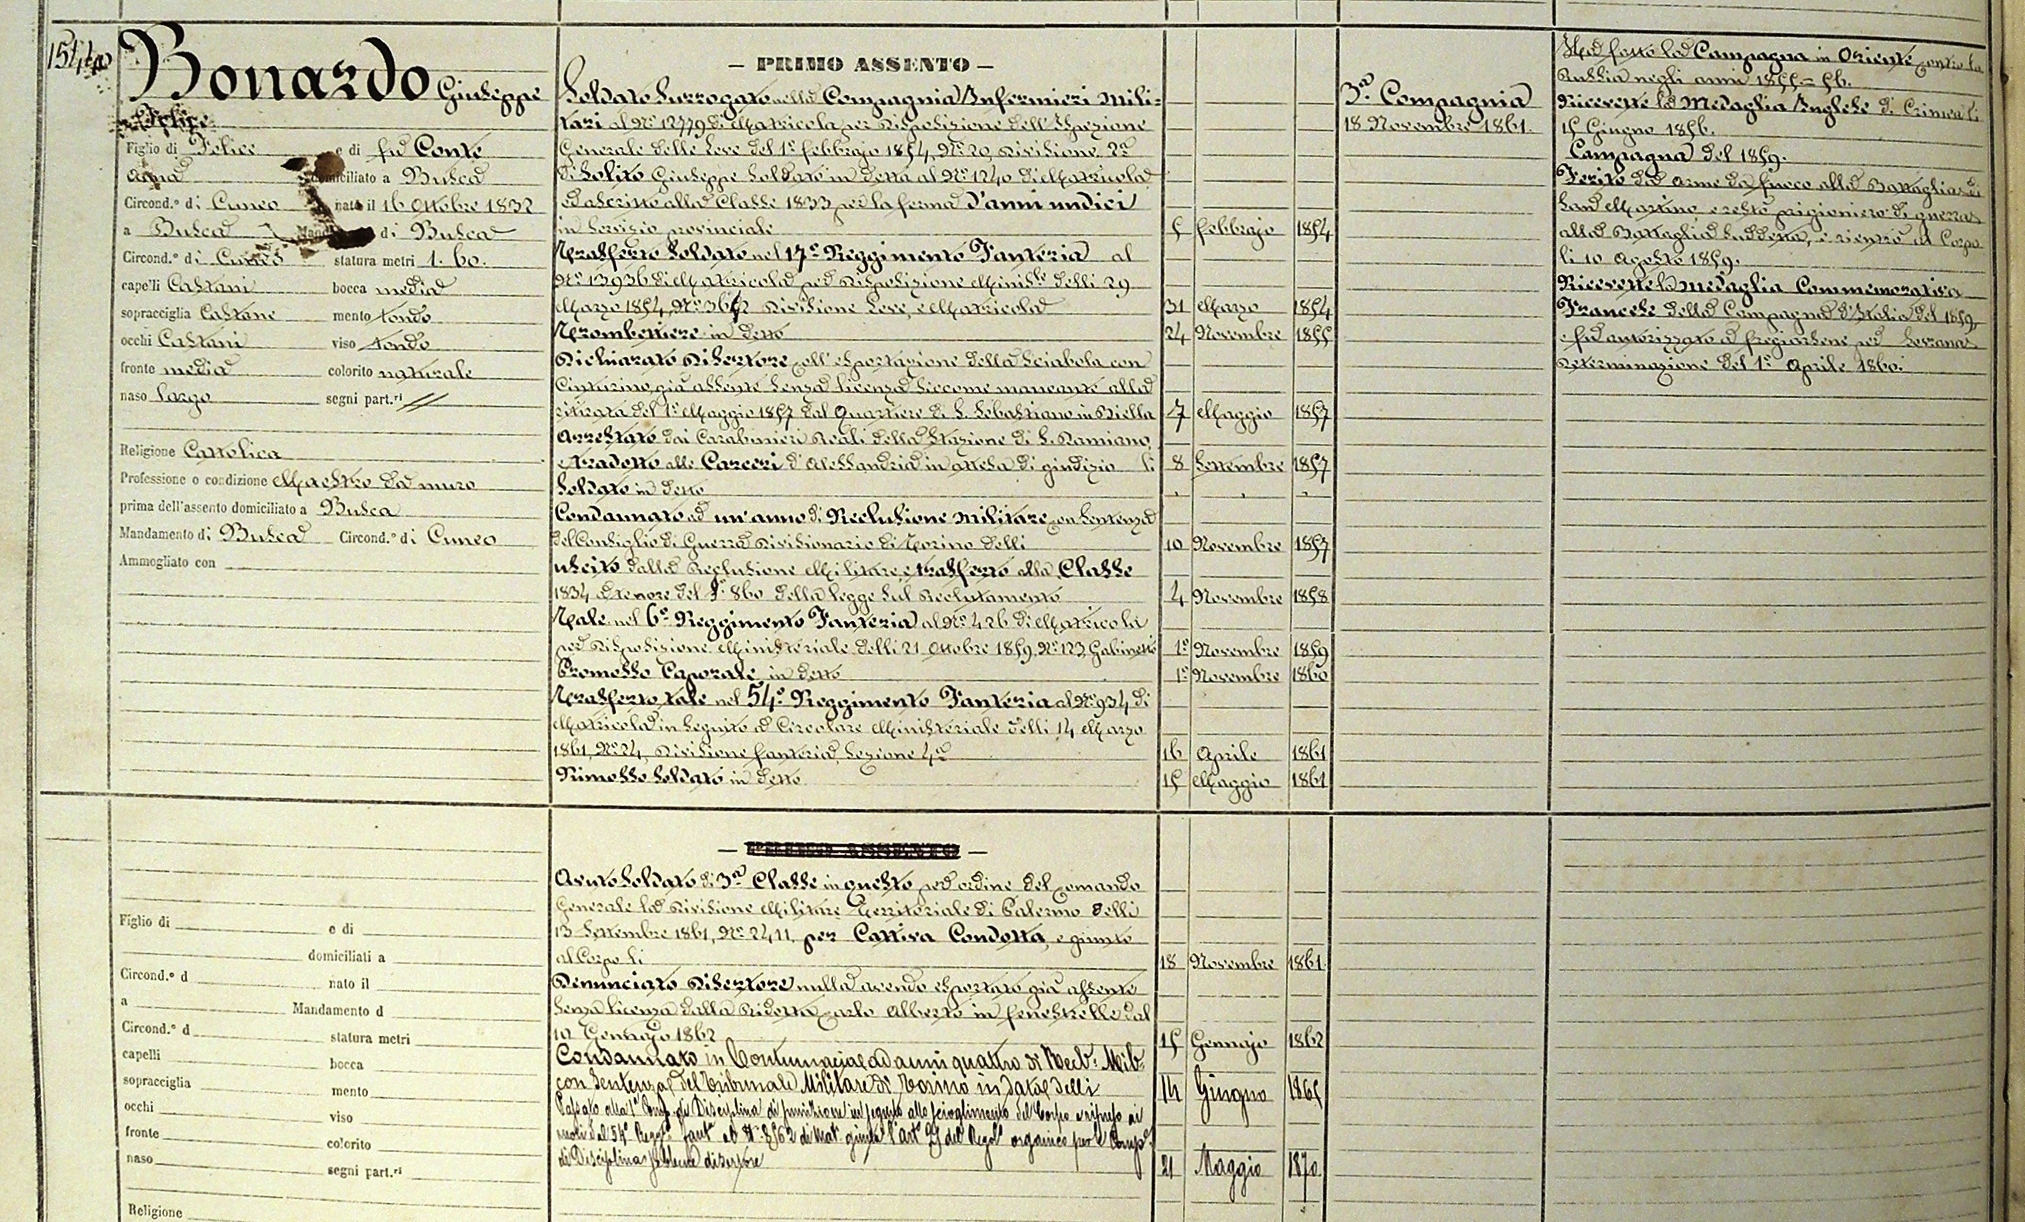 1544
Bonardo Giuseppe
Felice
Figlio di Felice e di fu Conte
Anna domiciliato a Busca
Circond.º di Cuneo nato il 16 Ottobre 1832
a Busca Mand di Busca
Circond.º di Cuneo statura metri 1. 60.
capelli Castani bocca media
sopracciglia Castane mento tondo
occhi Castani viso tondo
fronte media colorito naturale
naso largo segni part.ri //
Religione Cattolica
Professione o condizione Maestro da muro
prima dell'assento domiciliato a Busca
Mandamento di Busca Circond.º di Cuneo
Ammogliato con
— PRIMO ASSENTO —
Soldato Surrogato nella Compagnia Infermieri Mili=
tari al Nº 12779 di Matricola per Disposizione dell'Ispezione
Generale delle Leve del 1º febbrajo 1854, Nº 20, Divisione 2ª
di Solito Giuseppe Soldato in detta al Nº 1240 di Matricola
ed ascritto alla Classe 1833 per la ferma d'anni undici
in servizio provinciale 5 febbrajo 1854
Trasferto Soldato nel 17º Reggimento Fanteria al
Nº 13936 di Matricola per Disposizione Minist.le delli 29
Marzo 1854, Nº 3642 Divisione Leve, e Matricola 31 Marzo 1854
Trombettiere in detto 24 Novembre 1855
Dichiarato Disertore coll'esportazione della Sciabola con
Centurino, già assente senza licenza siccome mancante alla
ritirata del 1º Maggio 1857 dal Quartiere di S. Sebastiano in Biella 7 Maggio 1857
Arrestato dai Carabinieri Reali della Stazione di S. Damiano,
e tradotto alle Carceri d'Alessandria in attesa di giudizio li 8 Settembre 1857
Soldato in detto " " "
Condannato ad un'anno di Reclusione Militare con Sentenza
del Consiglio di Guerra Divisionario di Torino delli 10 Novembre 1857
Uscito dalla Reclusione Militare, e trasferto alla Classe
1834 a tenore del §. 860 della legge sul Reclutamento 4 Novembre 1858
Tale nel 6º Reggimento Fanteria al Nº 426 di Matricola
per Disposizione Ministeriale delli 21 Ottobre 1859, Nº 123, Gabinetto 1º Novembre 1859
Promosso Caporale in detto 1º Novembre 1860
Trasferto tale nel 54º Reggimento Fanteria al Nº 934 di
Matricola in seguito a Circolare Ministeriale delli 14 Marzo
1861, Nº 24, Divisione fanteria, Sezione 4ª 16 Aprile 1861
Rimosso Soldato in detto 15 Maggio 1861
3ª Compagnia
18 Novembre 1861.
Ha fatto la Campagna in Oriente contro la
Russia negli anni 1855=56.
Ricevette la Medaglia Inglese di Crimea li
15 Giugno 1856.
Campagna del 1859.
Ferito da arme da fuoco alla Battaglia di
San Martino, e restò prigioniero di guerra
alla Battaglia suddetta, e rientrò al Corpo
li 10 Agosto 1859.
Ricevette la medaglia Commemorativa
Francese della Campagna d'Italia del 1859,
e fu autorizzato a fregiarsene per Sovrana
Determinazione del 1º Aprile 1860.
— PRIMO ASSENTO —
Avuto Soldato di 3ª Classe in questo per ordine del Comando
Generale la Divisione Militare Territoriale di Palermo delli
13 Settembre 1861, Nº 2411, per Cattiva Condotta, e giunto
al Corpo li 18 Novembre 1861.
Denunciato Disertore nulla avendo esportato già assente
senza licenza dalla Ridotta Carlo Alberto in fenestrelle dal
10 Gennajo 1862 15 Gennajo 1862
Condannato in Contumacia ad anni quattro di Recl.e Mil.e
con Sentenza del Tribunale Militare di Torino in data delli 14 Giugno 1865
Passato alla 1ª Comp. di Disciplina di punizione in seguito allo scioglimento del Corpo e ai
ruoli del 54º Regg.º fant.a al Nº 8562 di Mat. giusta l'art. 25 del Regol.º organico per le Comp.e
di Disciplina disertore 21 Maggio 1870
Figlio di e di
domiciliati a
Circond.º d nato il
a Mandamento d
Circond.º d statura metri
capelli bocca
sopracciglia mento
occhi viso
fronte colorito
naso segni part.ri
Religione